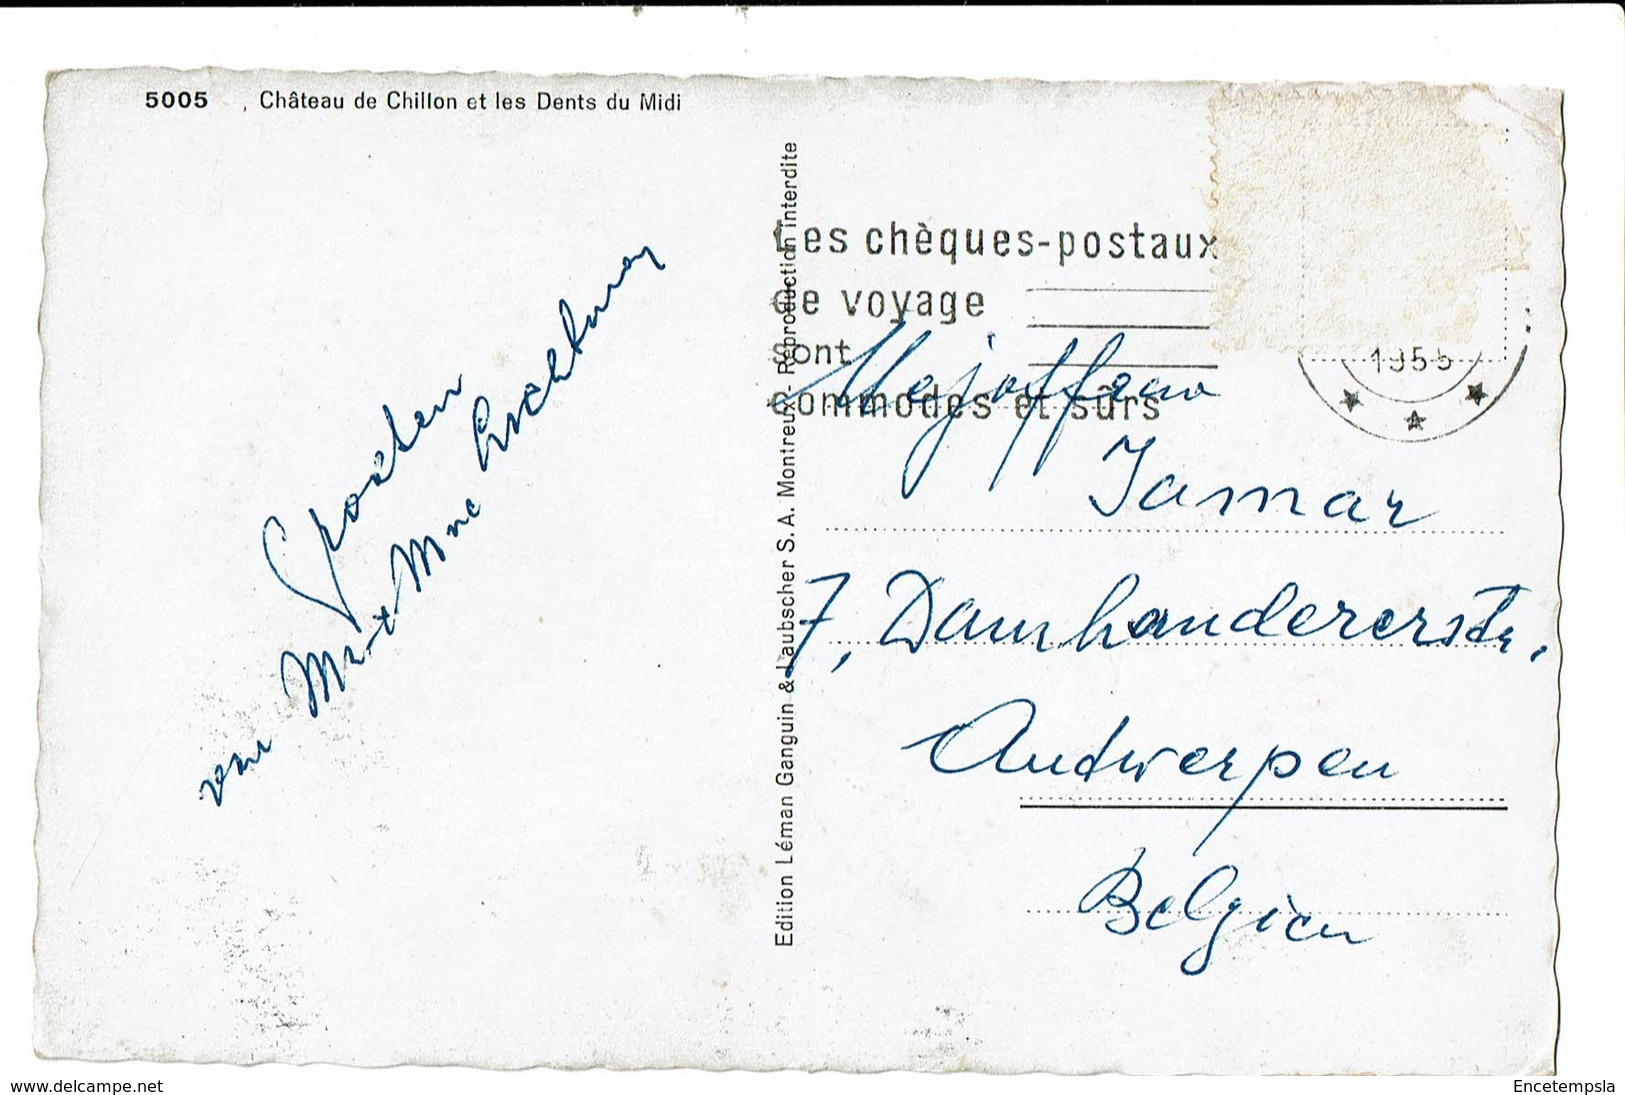 5005 Château de Chillon et les Dents du Midi
Groeten
van Mr + Mme
Edition Léman Ganguin & Laubscher S. A. Montreux - Reproduction interdite
Les chèques-postaux
de voyage
sont
commodes et sûrs
1955
Mejoffrouw
Jamar
7, Damhandererstr.
Antwerpen
Belgien
www.delcampe.net
Encetempsla